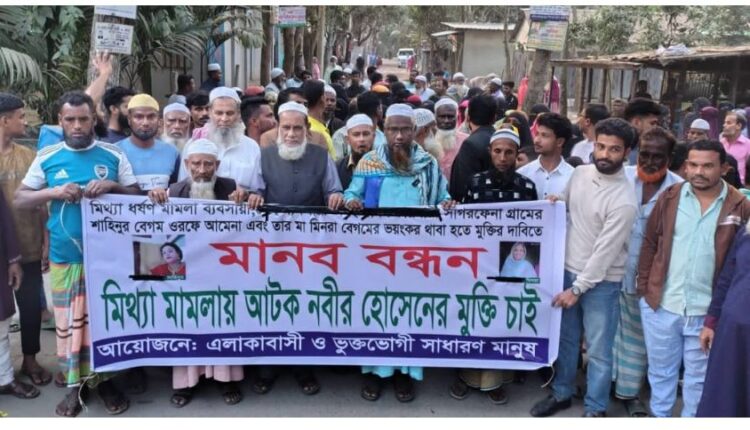 মিথ্যা ধর্ষণ মামলা ব্যবসায়ী সাপরফেনা গ্রামের
শাহিনুর বেগম ওরফে আমেনা এবং তার মা মিনরা বেগমের ভয়ংকর থাবা হতে মুক্তির দাবিতে
মানব বন্ধন
মিথ্যা মামলায় আটক নবীর হোসেনের মুক্তি চাই
আয়োজনে: এলাকাবাসী ও ভুক্তভোগী সাধারণ মানুষ